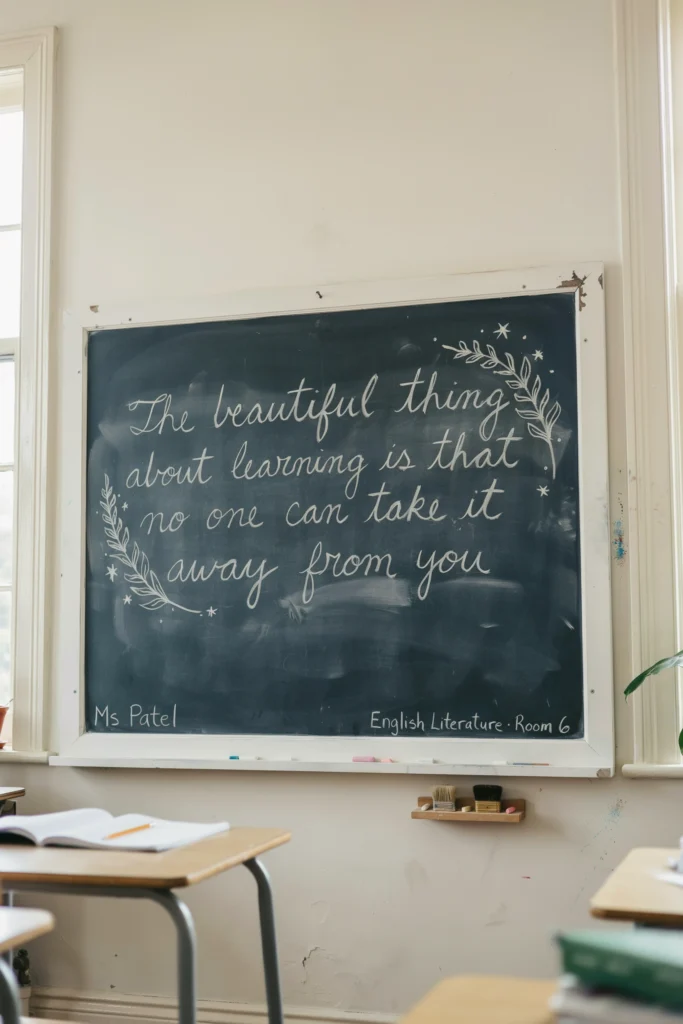 The beautiful thing
about learning is that
no one can take it
away from you
Ms Patel
English Literature · Room 6